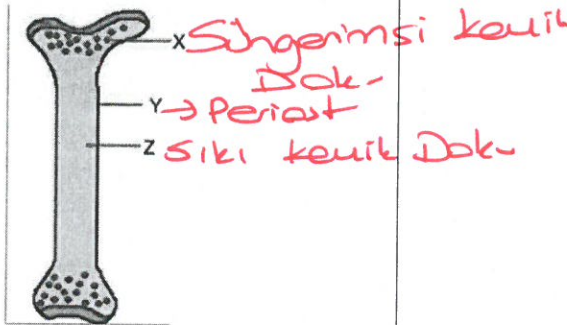 X Süngerimsi kemik
Dok-
Y → Periost
Z Sıkı kemik Dok-